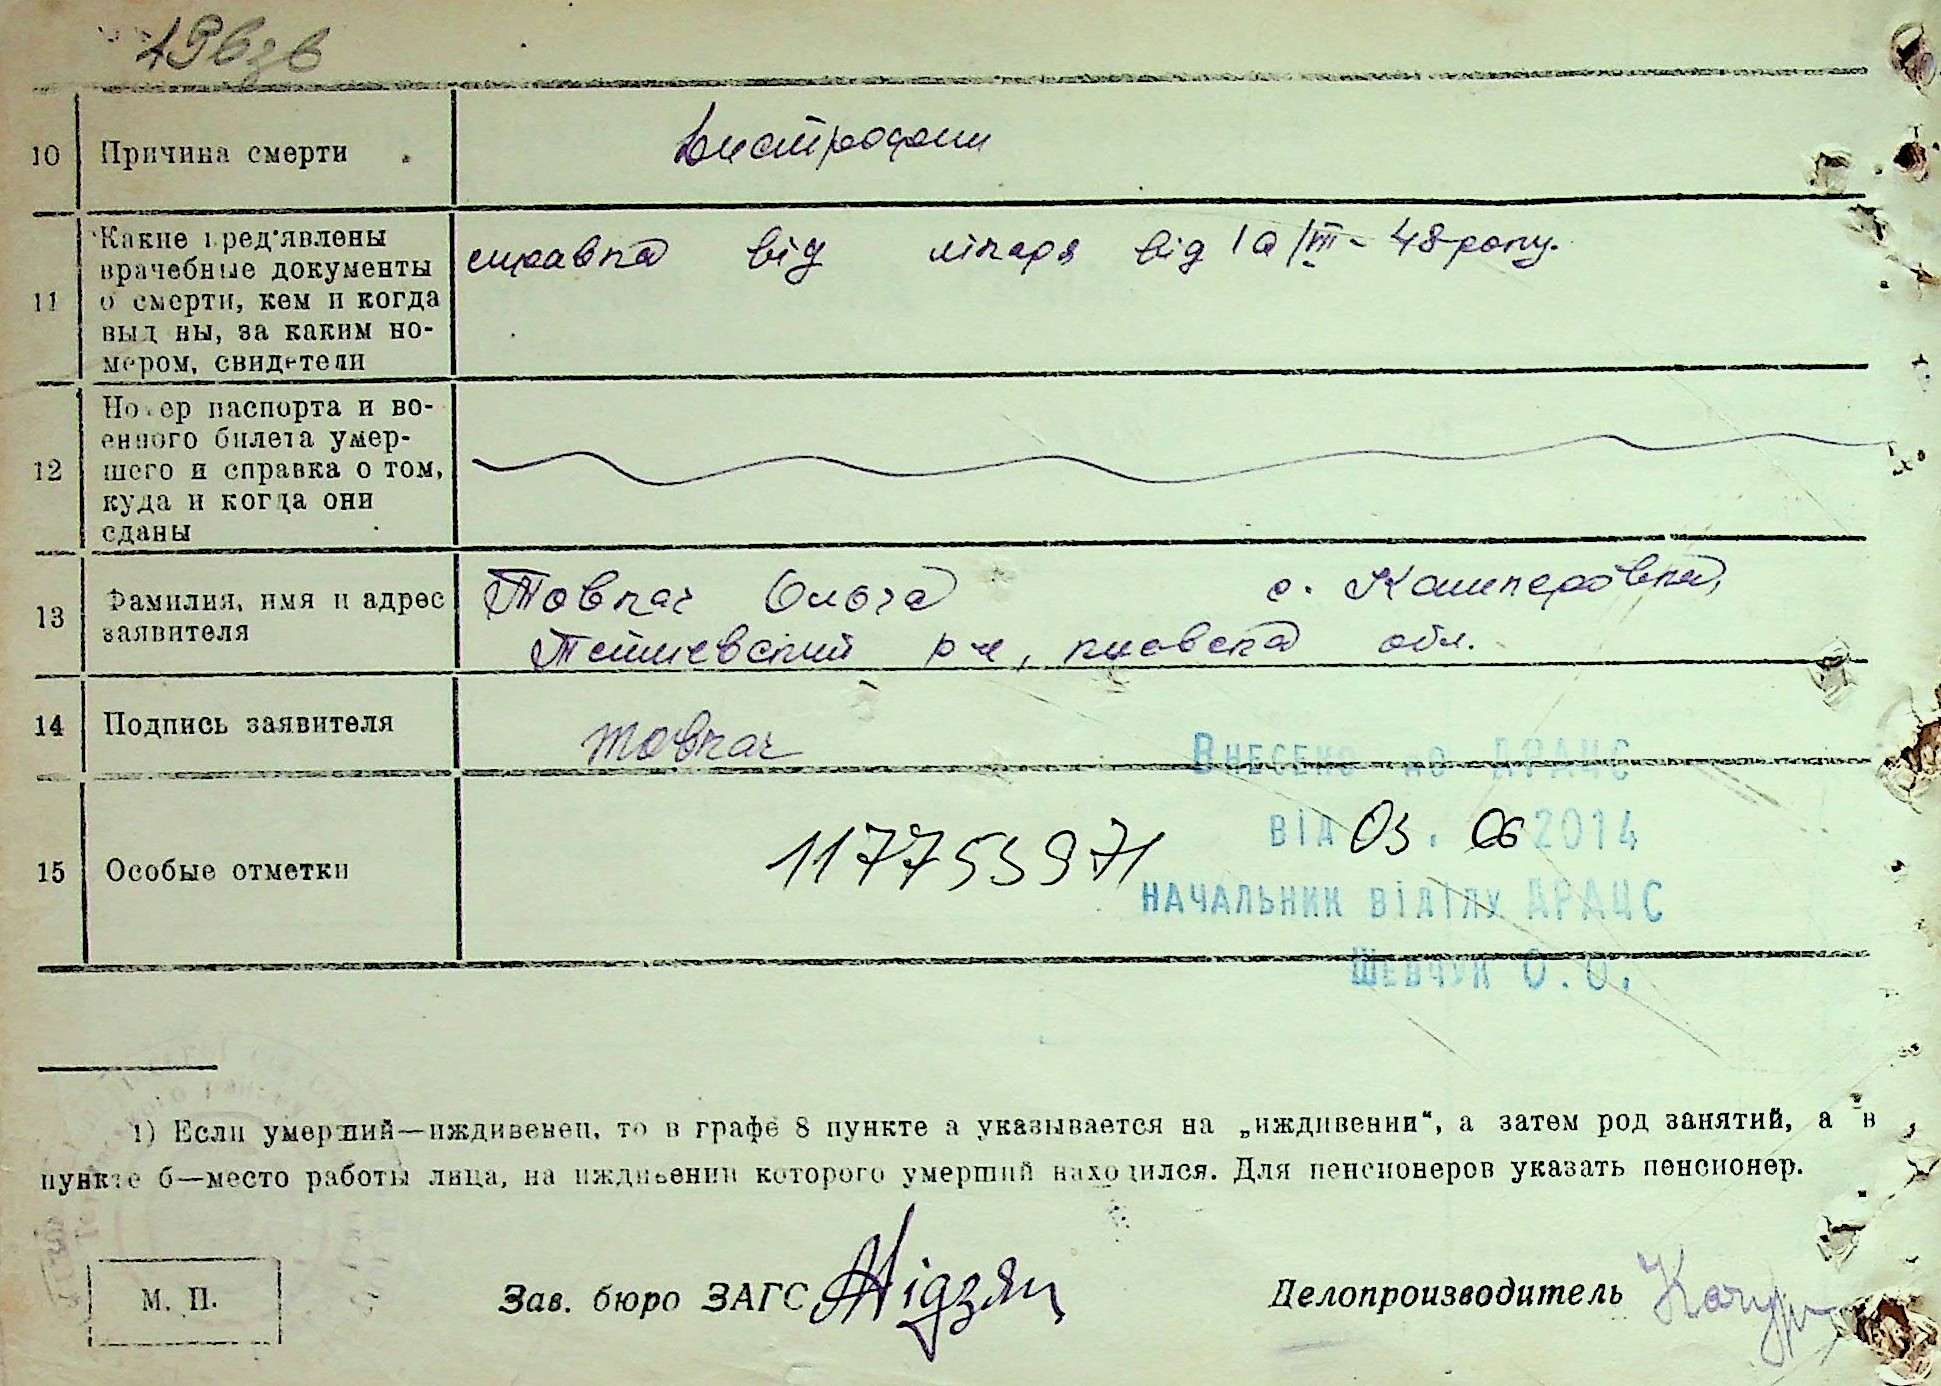 10 Причина смерти
Дистрофия
11 Какие пред'явлены
врачебные документы
о смерти, кем и когда
выданы, за каким но-
мером, свидетели
справка від лікаря від /III - 48 року.
12 Номер паспорта и во-
енного билета умер-
шего и справка о том,
куда и когда они
сданы
13 Фамилия, имя и адрес
заявителя
Товкач Ольга с. Кашперовка,
Тетиевский р-н, киевска обл.
14 Подпись заявителя
Товкач
Внесено до ДРАЦС
від 03. 06 2014
15 Особые отметки
117753971
начальник відділу ДРАЦС
Шевчук О.О.
1) Если умерший—иждивенец, то в графе 8 пункте а указывается на „иждивении“, а затем род занятий, а в
пункте б—место работы лица, на иждивении которого умерший находился. Для пенсионеров указать пенсионер.
М. П.
Зав. бюро ЗАГС
Делопроизводитель